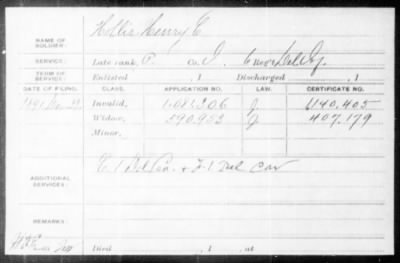 NAME OF SOLDIER: Hollis Henry C
SERVICE: Late rank, P. Co. I, 6 Reg't Del Inf.
TERM OF SERVICE: Enlisted , 1 Discharged , 1
DATE OF FILING. CLASS. APPLICATION NO. LAW. CERTIFICATE NO.
1891 Invalid, 1.081.206 J 1140.405
Widow, 590.953 J 407.179
Minor,
ADDITIONAL SERVICES: E 1 Del + F 1 Del Cav
REMARKS:
Died , 1 , at